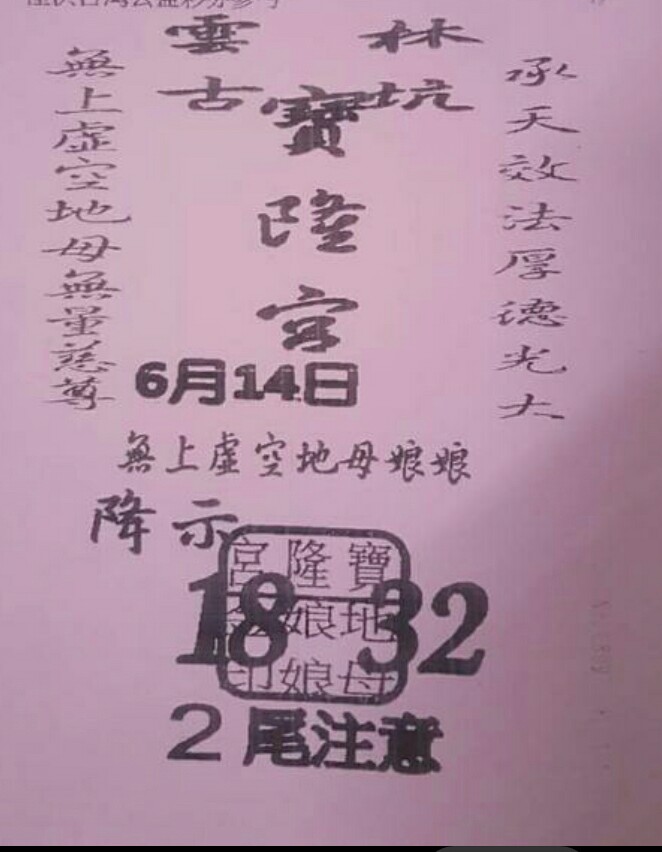 雲林
古坑
寶隆宮
承天效法厚德光大
無上虛空地母無量慈尊
6月14日
無上虛空地母娘娘
降示
寶隆宮
地母娘娘
印
18 32
2尾注意